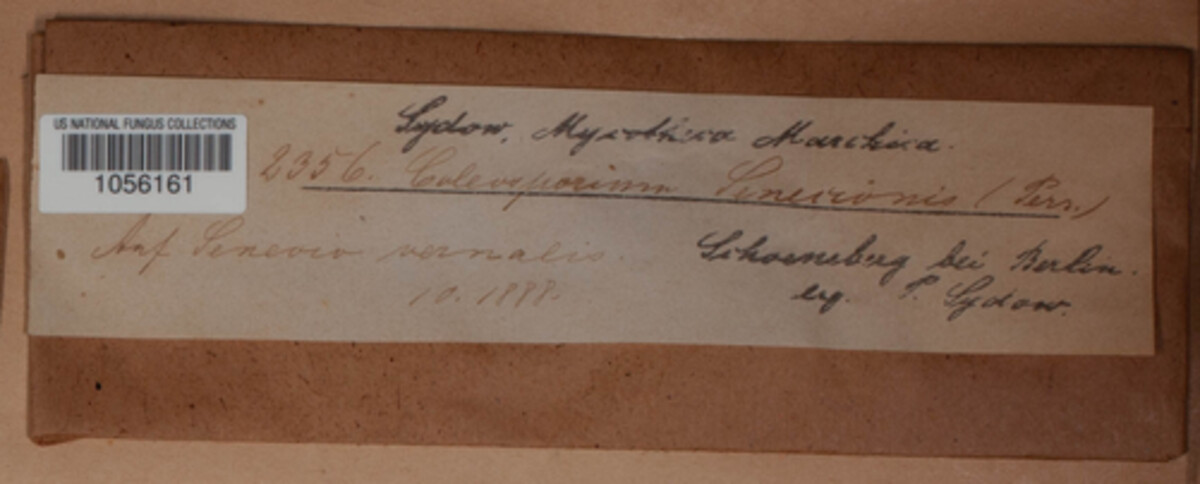 US NATIONAL FUNGUS COLLECTIONS
1056161
Sydow, Mycotheca Marchica.
2356. Coleosporium Senecionis (Pers.)
Auf Senecio vernalis.
10. 1888.
Schoeneberg bei Berlin.
leg. P. Sydow.